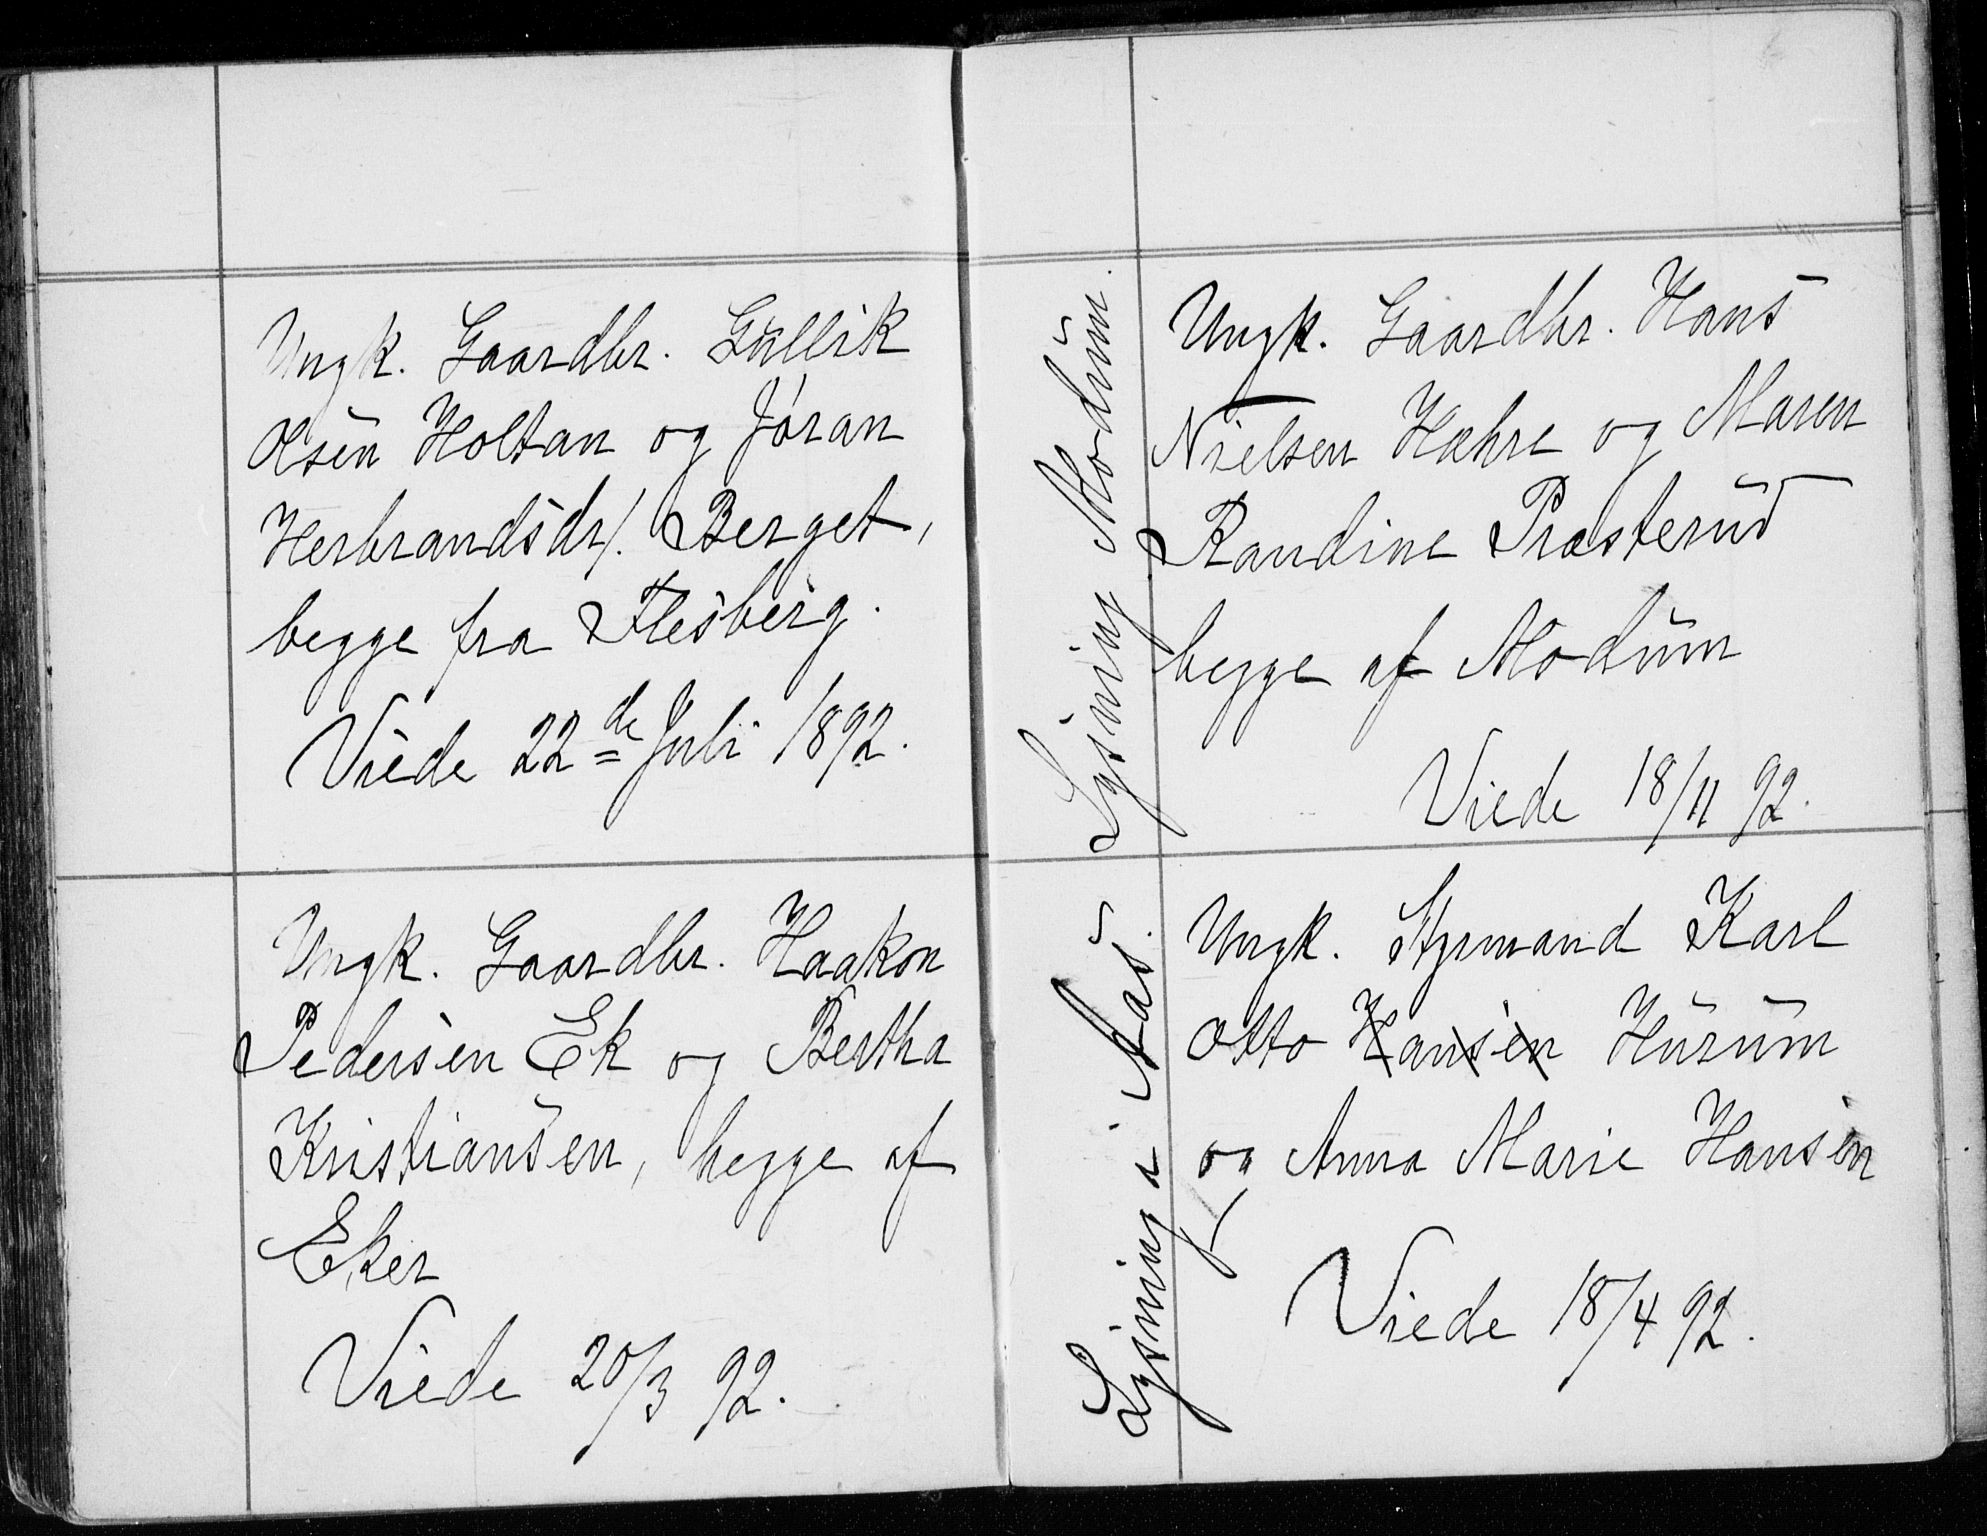 Ungk. Gaardbr. Gullik
Olsen Holtan og Jøran
Herbrandsdr/. Berget,
begge fra Flesberg.
Viede 22de Juli 1892.
Ungk. Gaardbr. Haakon
Pedersen Ek og Bertha
Kristiansen, begge af
Eker
Viede 20/3 92.
Lysning Modum.
Ungk. Gaardbr. Hans
Nielsen Hæhre og Maren
Randine Præsterud
begge af Modum
Viede 18/11 92.
Lysning i Aas.
Ungk. Styrmand Karl
Otto Hansen Hurum
og Anna Marie Hansen
Viede 18/4 92.